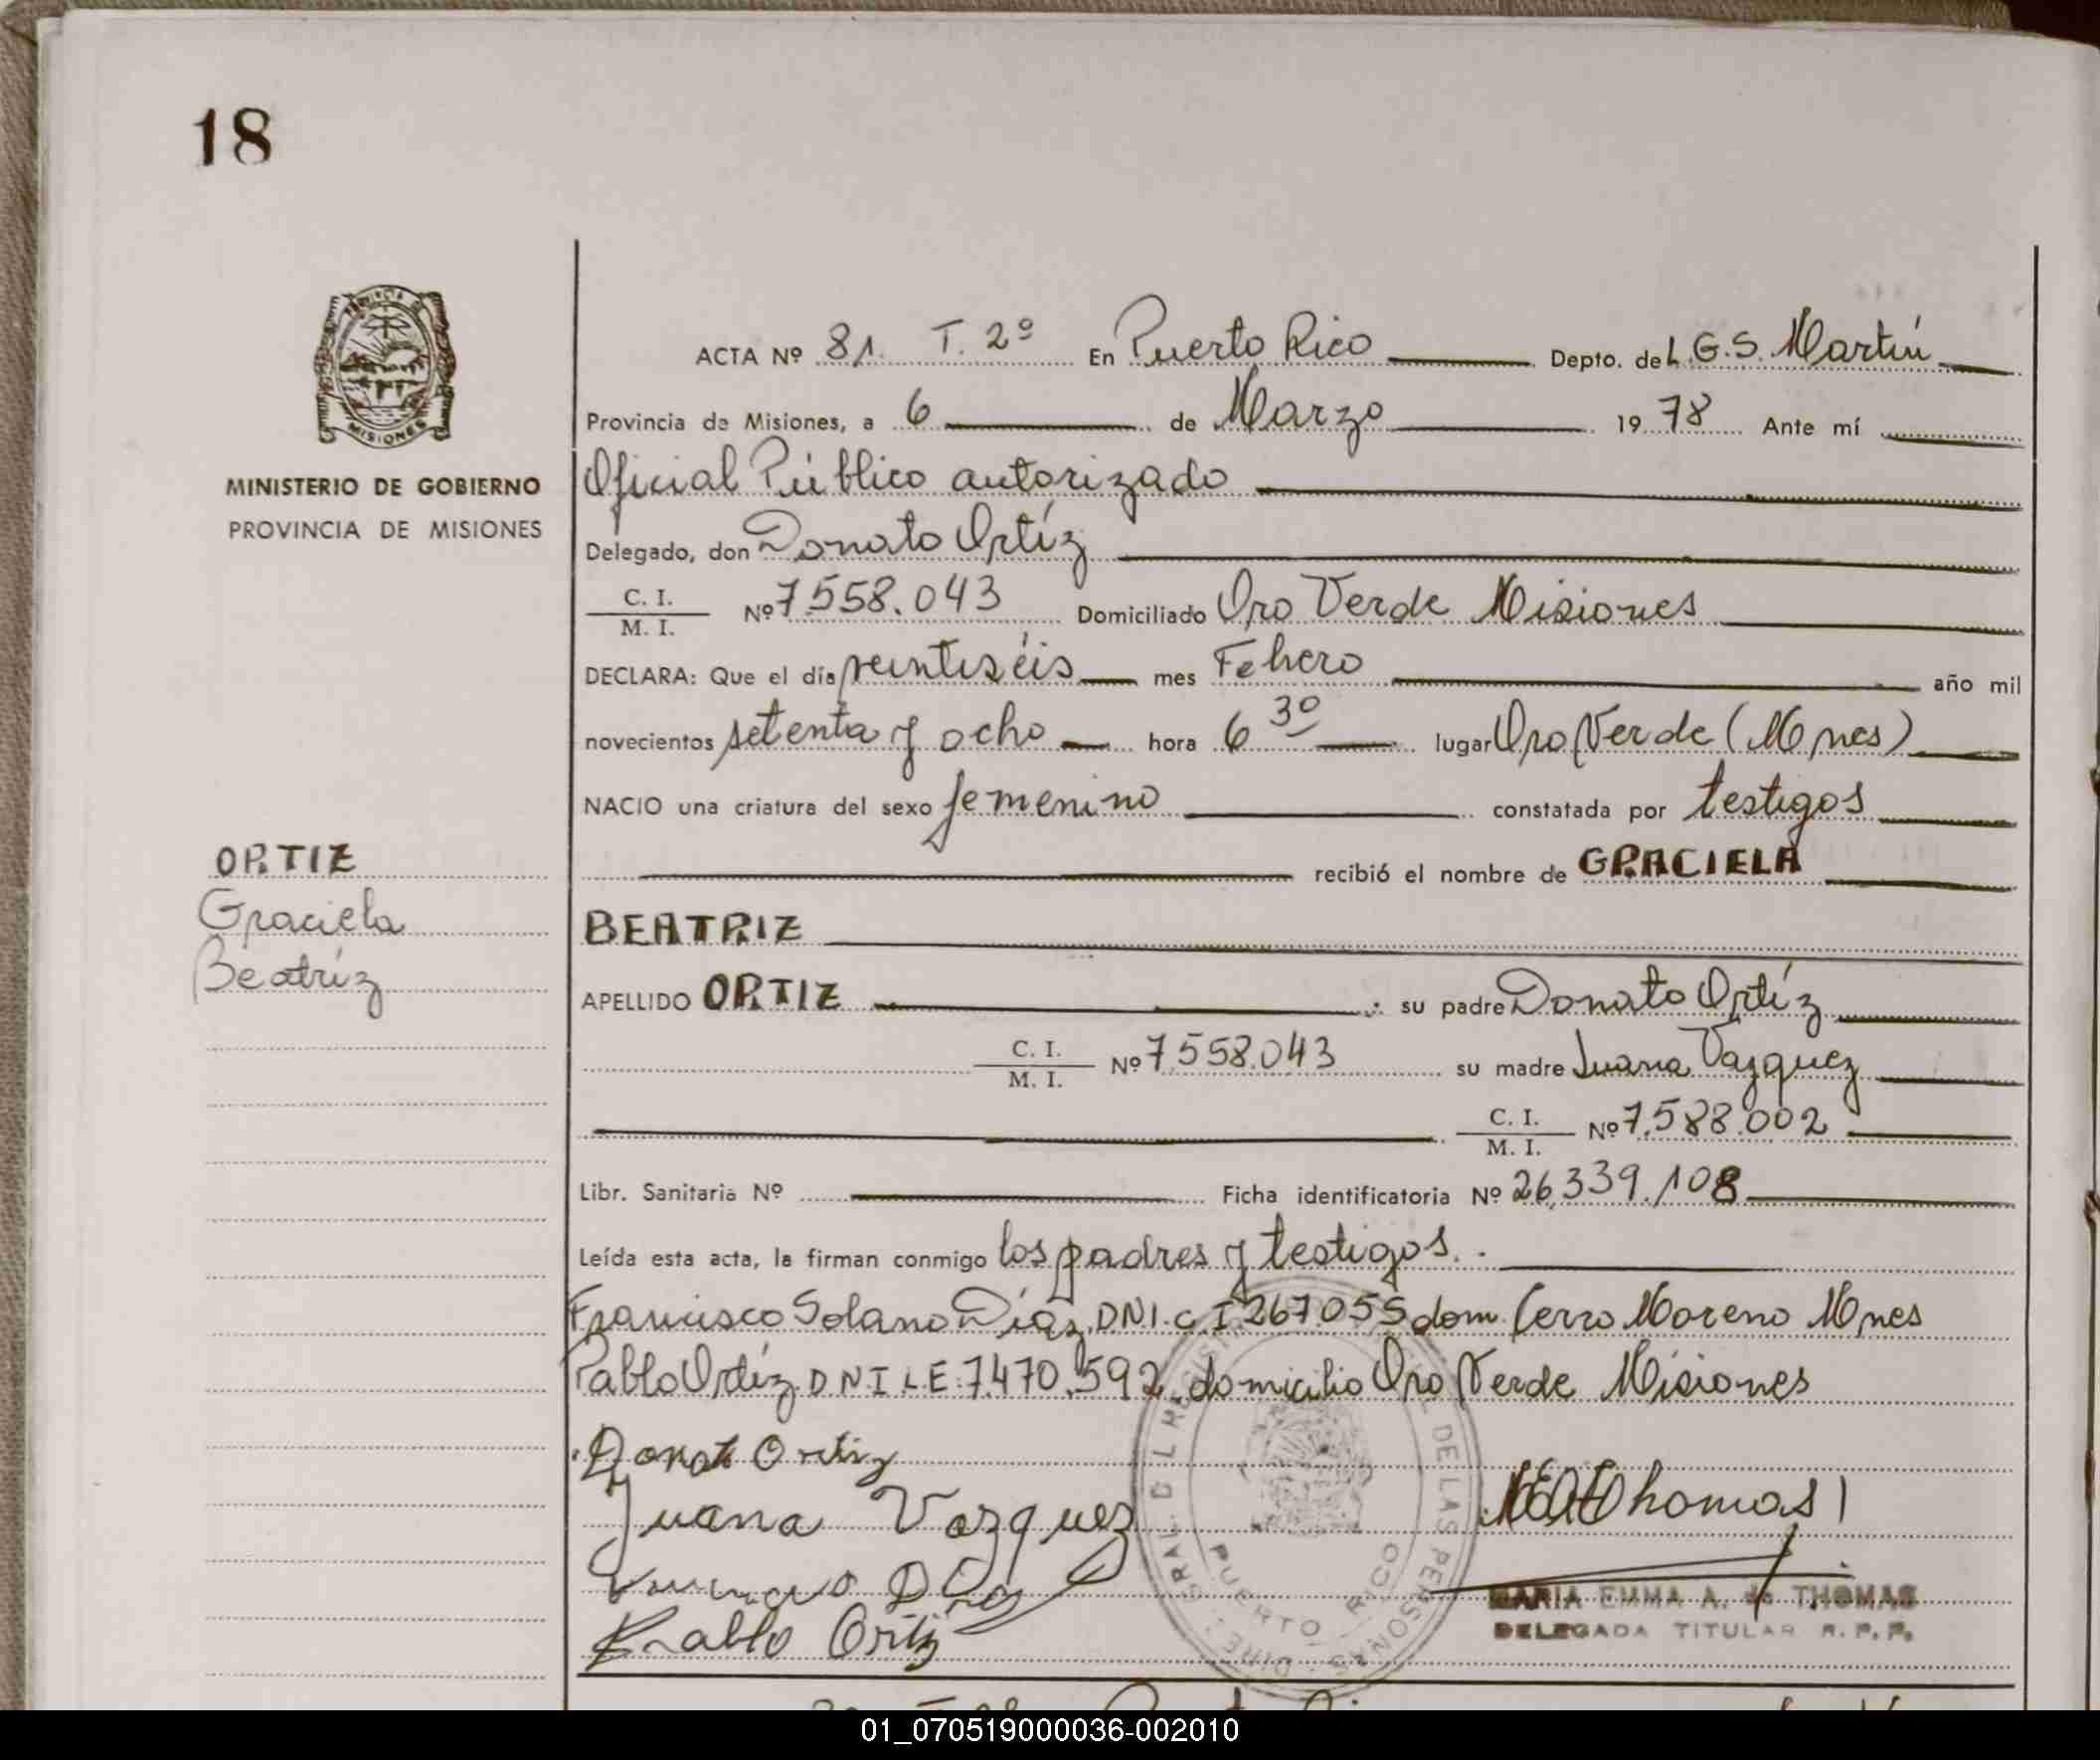 18
PROVINCIA DE
MISIONES
MINISTERIO DE GOBIERNO
PROVINCIA DE MISIONES
ORTIZ
Graciela
Beatríz
ACTA Nº 81. T. 2º En Puerto Rico Depto. de L.G.S. Martín
Provincia de Misiones, a 6 de Marzo 1978 Ante mí
Oficial Público autorizado
Delegado, don Donato Ortíz
C. I. / M. I. Nº 7.558.043 Domiciliado Oro Verde Misiones
DECLARA: Que el día veintiséis mes Febrero año mil
novecientos setenta y ocho hora 6 30 lugar Oro Verde (Mnes)
NACIO una criatura del sexo femenino constatada por testigos
recibió el nombre de GRACIELA
BEATRIZ
APELLIDO ORTIZ ; su padre Donato Ortíz
C. I. / M. I. Nº 7.558.043 su madre Juana Vazquez
C. I. / M. I. Nº 7.588.002
Libr. Sanitaria Nº Ficha identificatoria Nº 26,339.108
Leída esta acta, la firman conmigo los padres y testigos.
Francisco Solano Díaz DNI. C.I 267055 dom. Cerro Moreno Mnes
Pablo Ortíz DNI LE 7.470.592 domicilio Oro Verde Misiones
Donato Ortiz
Juana Vazquez
Pablo Ortiz
Thomas
MARIA EMMA A. de THOMAS
DELEGADA TITULAR R. P. P.
DE LAS PERSONAS
PUERTO RICO
01_070519000036-002010